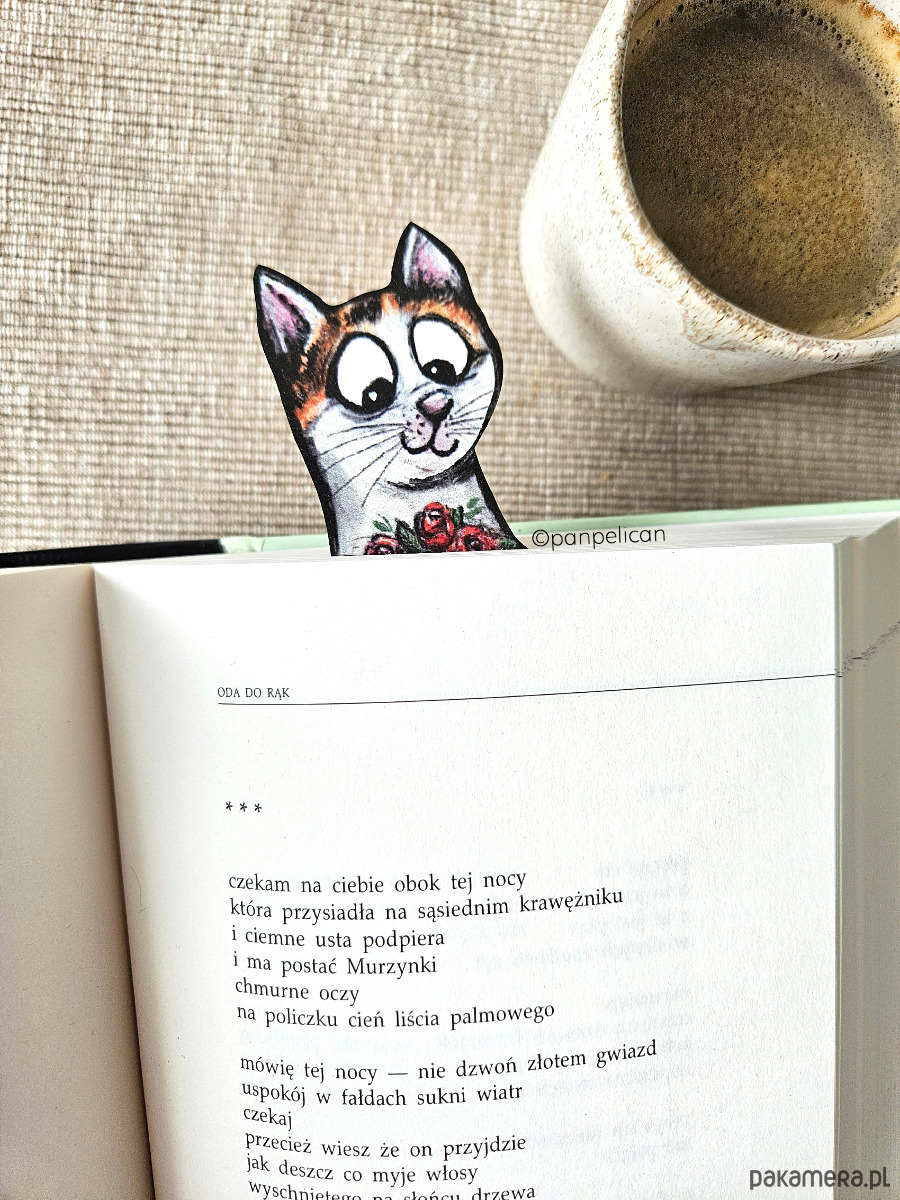 ©panpelican
ODA DO RĄK
* * *
czekam na ciebie obok tej nocy
która przysiadła na sąsiednim krawężniku
i ciemne usta podpiera
i ma postać Murzynki
chmurne oczy
na policzku cień liścia palmowego
mówię tej nocy — nie dzwoń złotem gwiazd
uspokój w fałdach sukni wiatr
czekaj
przecież wiesz że on przyjdzie
jak deszcz co myje włosy
wyschniętego na słońcu drzewa
pakamera.pl